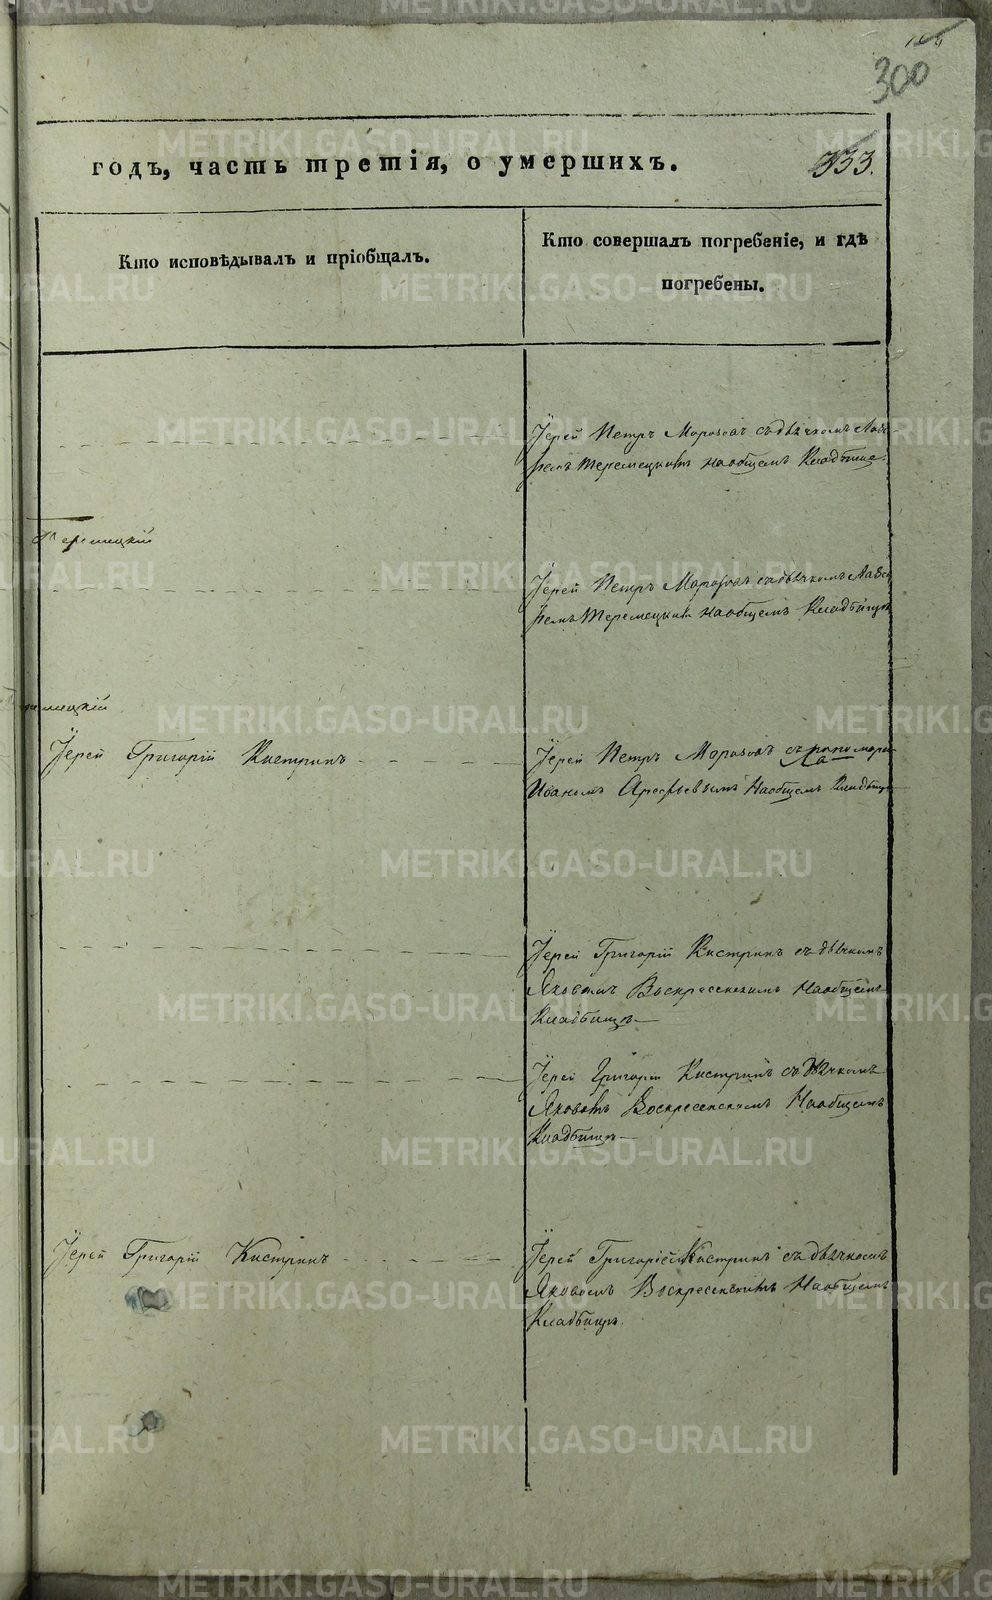 300
годъ, часть третія, о умершихъ.
353.
Кто исповѣдывалъ и пріобщалъ.
Кто совершалъ погребеніе, и гдѣ
погребены.
Іерей Петръ Морозовъ съ дьячкомъ
Теремецкимъ на общемъ Кладбище.
Теремецкій
Іерей Петръ Морозовъ съ дьячкомъ
Теремецкимъ на общемъ Кладбищѣ
мецкій
Іерей Григорій Кистринъ
Іерей Петръ Морозовъ съ
Иваномъ Арефьевымъ на общемъ Кладбищ
Іерей Григорій Кистринъ съ дьячкомъ
Яковомъ Воскресенскимъ на общемъ
Кладбищѣ
Іерей Григорій Кистринъ съ дьячкомъ
Яковомъ Воскресенскимъ на общемъ
Кладбищѣ
Іерей Григорій Кистринъ
Іерей Григорій Кистринъ съ дьячкомъ
Яковомъ Воскресенскимъ на общемъ
Кладбищѣ.
METRIKI.GASO-URAL.RU